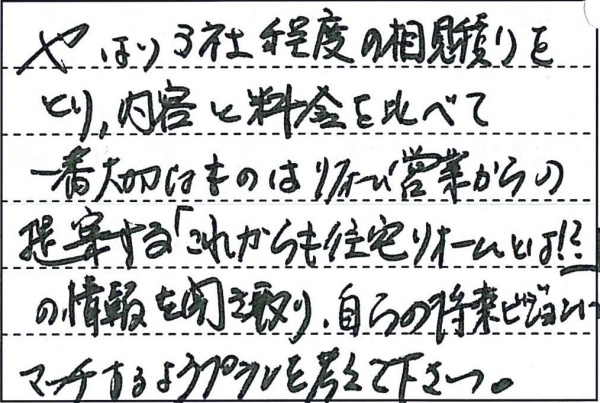 やはり3社程度の相見積りを
とり,内容と料金を比べて
一番大切なものはリフォーム営業からの
提案する「これからも住宅リォームとは!?
の情報を聞き取り、自らの将来ビジョンに
マッチするようプランを考えて下さい。